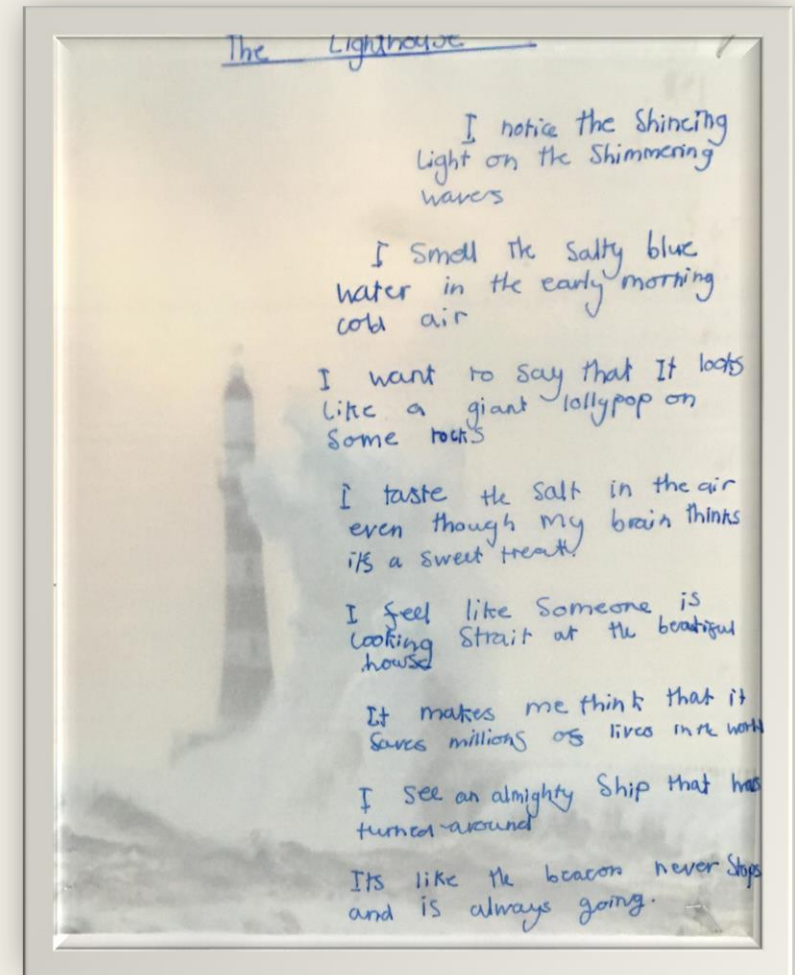 The Lighthouse
I notice the Shineing
Light on the Shimmering
waves
I Smell the Salty blue
water in the early morning
cold air
I want to say that It looks
like a giant lollypop on
Some rocks
I taste the Salt in the air
even though my brain thinks
it's a sweet treat.
I feel like Someone is
looking Strait at the beautiful
house
It makes me think that it
Saves millions of lives in the world
I See an almighty Ship that has
turned around
Its like the beacon never Stops
and is always going.